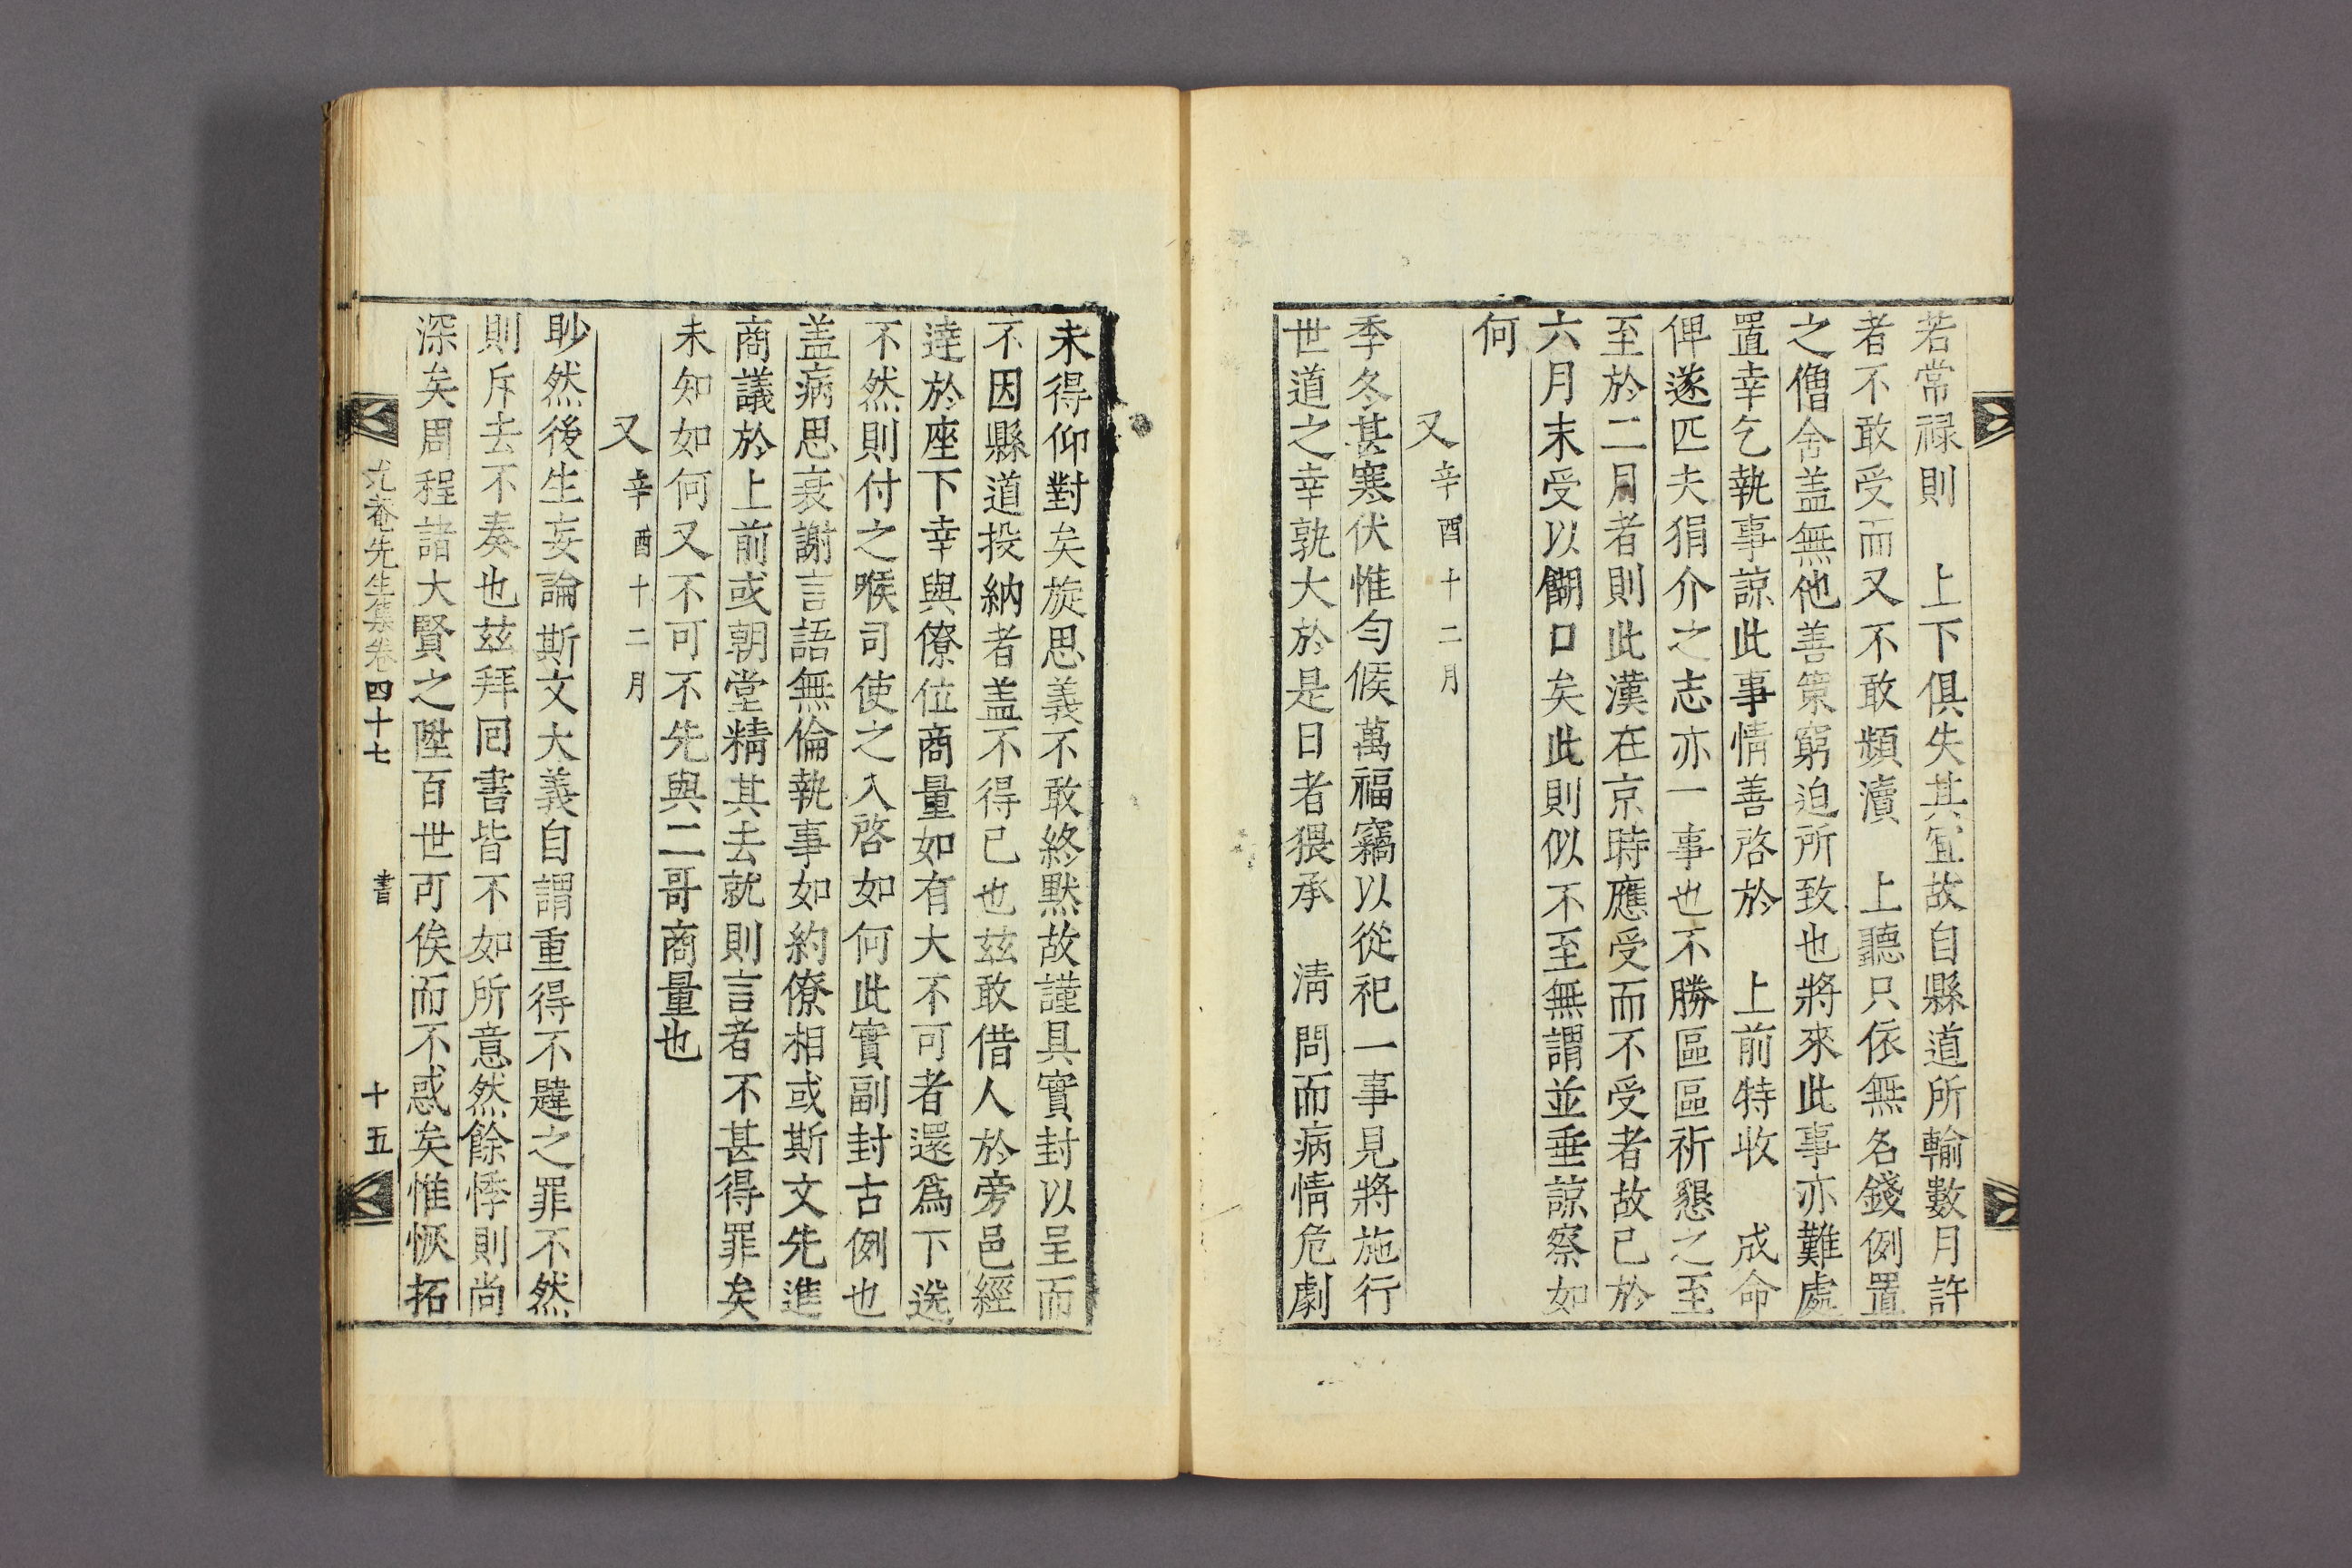 若常禄則 上下俱失其宜故自縣道所輸數月許
者不敢受而又不敢頻瀆 上聽只依無名錢例置
之僧舍盖無他善策窮迫所致也將來此事亦難處
置幸乞執事諒此事情善啓於 上前特收 成命
俾遂匹夫狷介之志亦一事也不勝區區祈懇之至
至於二月者則此漢在京時應受而不受者故已於
六月末受以餬口矣此則似不至無謂並垂諒察如
何
又 辛酉十二月
季冬甚寒伏惟勻候萬福竊以從祀一事見將施行
世道之幸孰大於是日者猥承 淸問而病情危劇
未得仰對矣旋思義不敢終默故謹具實封以呈而
不因縣道投納者盖不得已也玆敢借人於旁邑經
達於座下幸與僚位商量如有大不可者還爲下送
不然則付之喉司使之入啓如何此實副封古例也
盖病思衰謝言語無倫執事如約僚相或斯文先進
商議於上前或朝堂精其去就則言者不甚得罪矣
未知如何又不可不先與二哥商量也
又 辛酉十二月
眇然後生妄論斯文大義自謂重得不韙之罪不然
則斥去不奏也玆拜囘書皆不如所意然餘悸則尚
深矣周程諸大賢之陞百世可俟而不惑矣惟恢拓
尤菴先生集卷四十七 書 十五